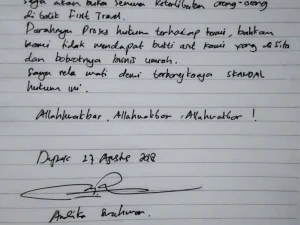 saya akan buka semua keterlibatan orang-orang
di balik First Travel.
Parahnya Proses hukum terhadap kami, bahkan
kami tidak mendapat bukti aset kami yang disita
dan bobroknya bisnis umroh.
Saya rela mati demi terbongkarnya SKANDAL
hukum ini.
Allahuakbar, Allahuakbar, Allahuakbar !
Depok 17 Agustus 2018
Andika Surachman.